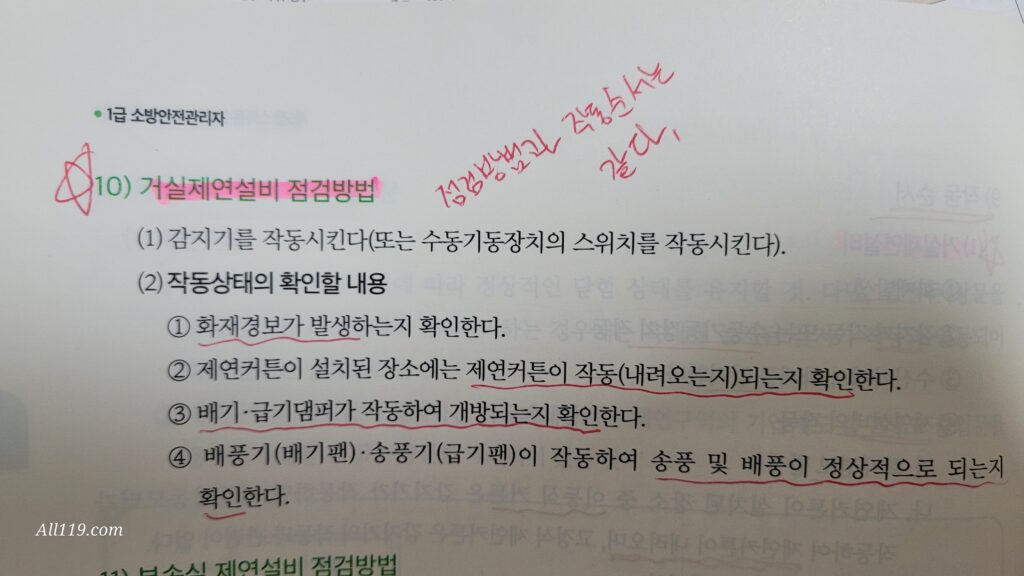 • 1급 소방안전관리자
점검방법과 작동순서는
같다.
10) 거실제연설비 점검방법
(1) 감지기를 작동시킨다(또는 수동기동장치의 스위치를 작동시킨다).
(2) 작동상태의 확인할 내용
① 화재경보가 발생하는지 확인한다.
② 제연커튼이 설치된 장소에는 제연커튼이 작동(내려오는지)되는지 확인한다.
③ 배기·급기댐퍼가 작동하여 개방되는지 확인한다.
④ 배풍기(배기팬)·송풍기(급기팬)이 작동하여 송풍 및 배풍이 정상적으로 되는지
확인한다.
All119.com
11) 부속실 제연설비 점검방법